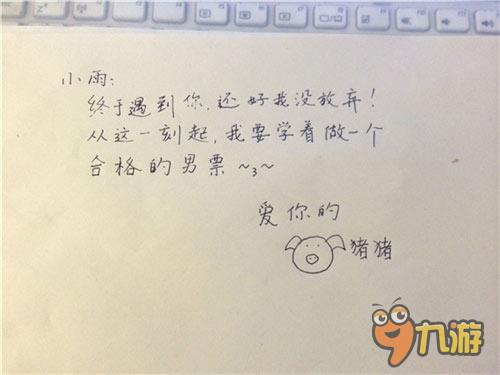 小雨:
终于遇到你,还好我没放弃!
从这一刻起,我要学着做一个
合格的男票~3~
爱你的
猪猪
九游